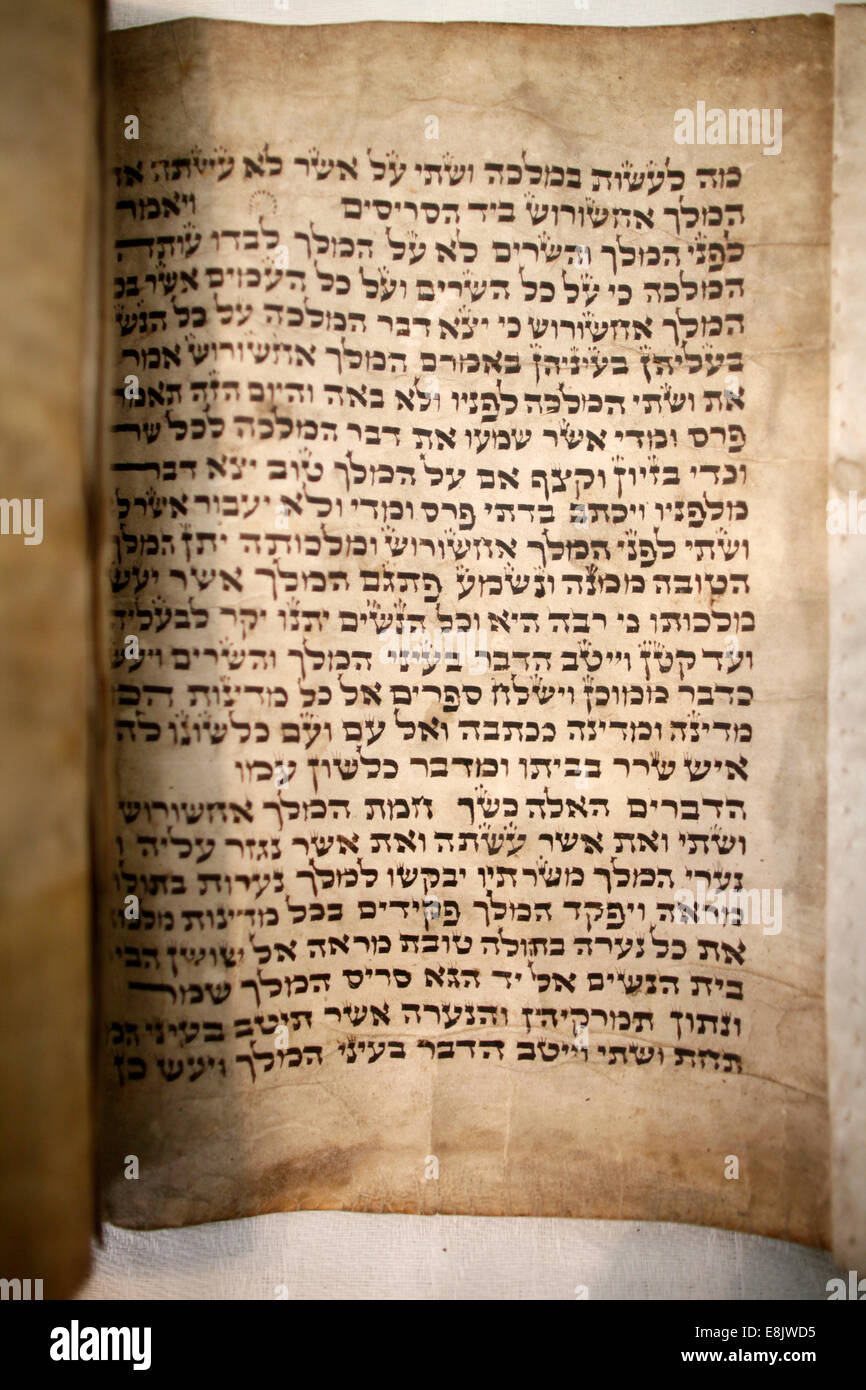 מה לעשות במלכה ושתי על אשר לא עשתה את
המלך אחשורוש ביד הסריסים ויאמר
לפני המלך והשרים לא על המלך לבדו עותה
המלכה כי על כל השרים ועל כל העמים אשר בכ
המלך אחשורוש כי יצא דבר המלכה על כל הנשי
בעליהן בעיניהן באמרם המלך אחשורוש אמר
את ושתי המלכה לפניו ולא באה והיום הזה תאמר
פרס ומדי אשר שמעו את דבר המלכה לכל שר
וכדי בזיון וקצף אם על המלך טוב יצא דבר
מלפניו ויכתב בדתי פרס ומדי ולא יעבור אשר ל
ושתי לפני המלך אחשורוש ומלכותה יתן המלך
הטובה ממנה ונשמע פתגם המלך אשר יעש
מלכותו כי רבה היא וכל הנשים יתנו יקר לבעליה
ועד קטן וייטב הדבר בעיני המלך והשרים ויעש
כדבר ממוכן וישלח ספרים אל כל מדינות המ
מדינה ומדינה ככתבה ואל עם ועם כלשונו לה
איש שרר בביתו ומדבר כלשון עמו
הדברים האלה כשך חמת המלך אחשורוש
ושתי ואת אשר עשתה ואת אשר נגזר עליה ו
נערי המלך משרתיו יבקשו למלך נערות בתולו
מראה ויפקד המלך פקידים בכל מדינות מלכו
את כל נערה בתולה טובת מראה אל שושן הבי
בית הנשים אל יד הגא סריס המלך שמר
ונתון תמרקיהן והנערה אשר תיטב בעיני המ
תחת ושתי וייטב הדבר בעיני המלך ויעש כן
alamy
a
E8JWD5
www.alamy.com